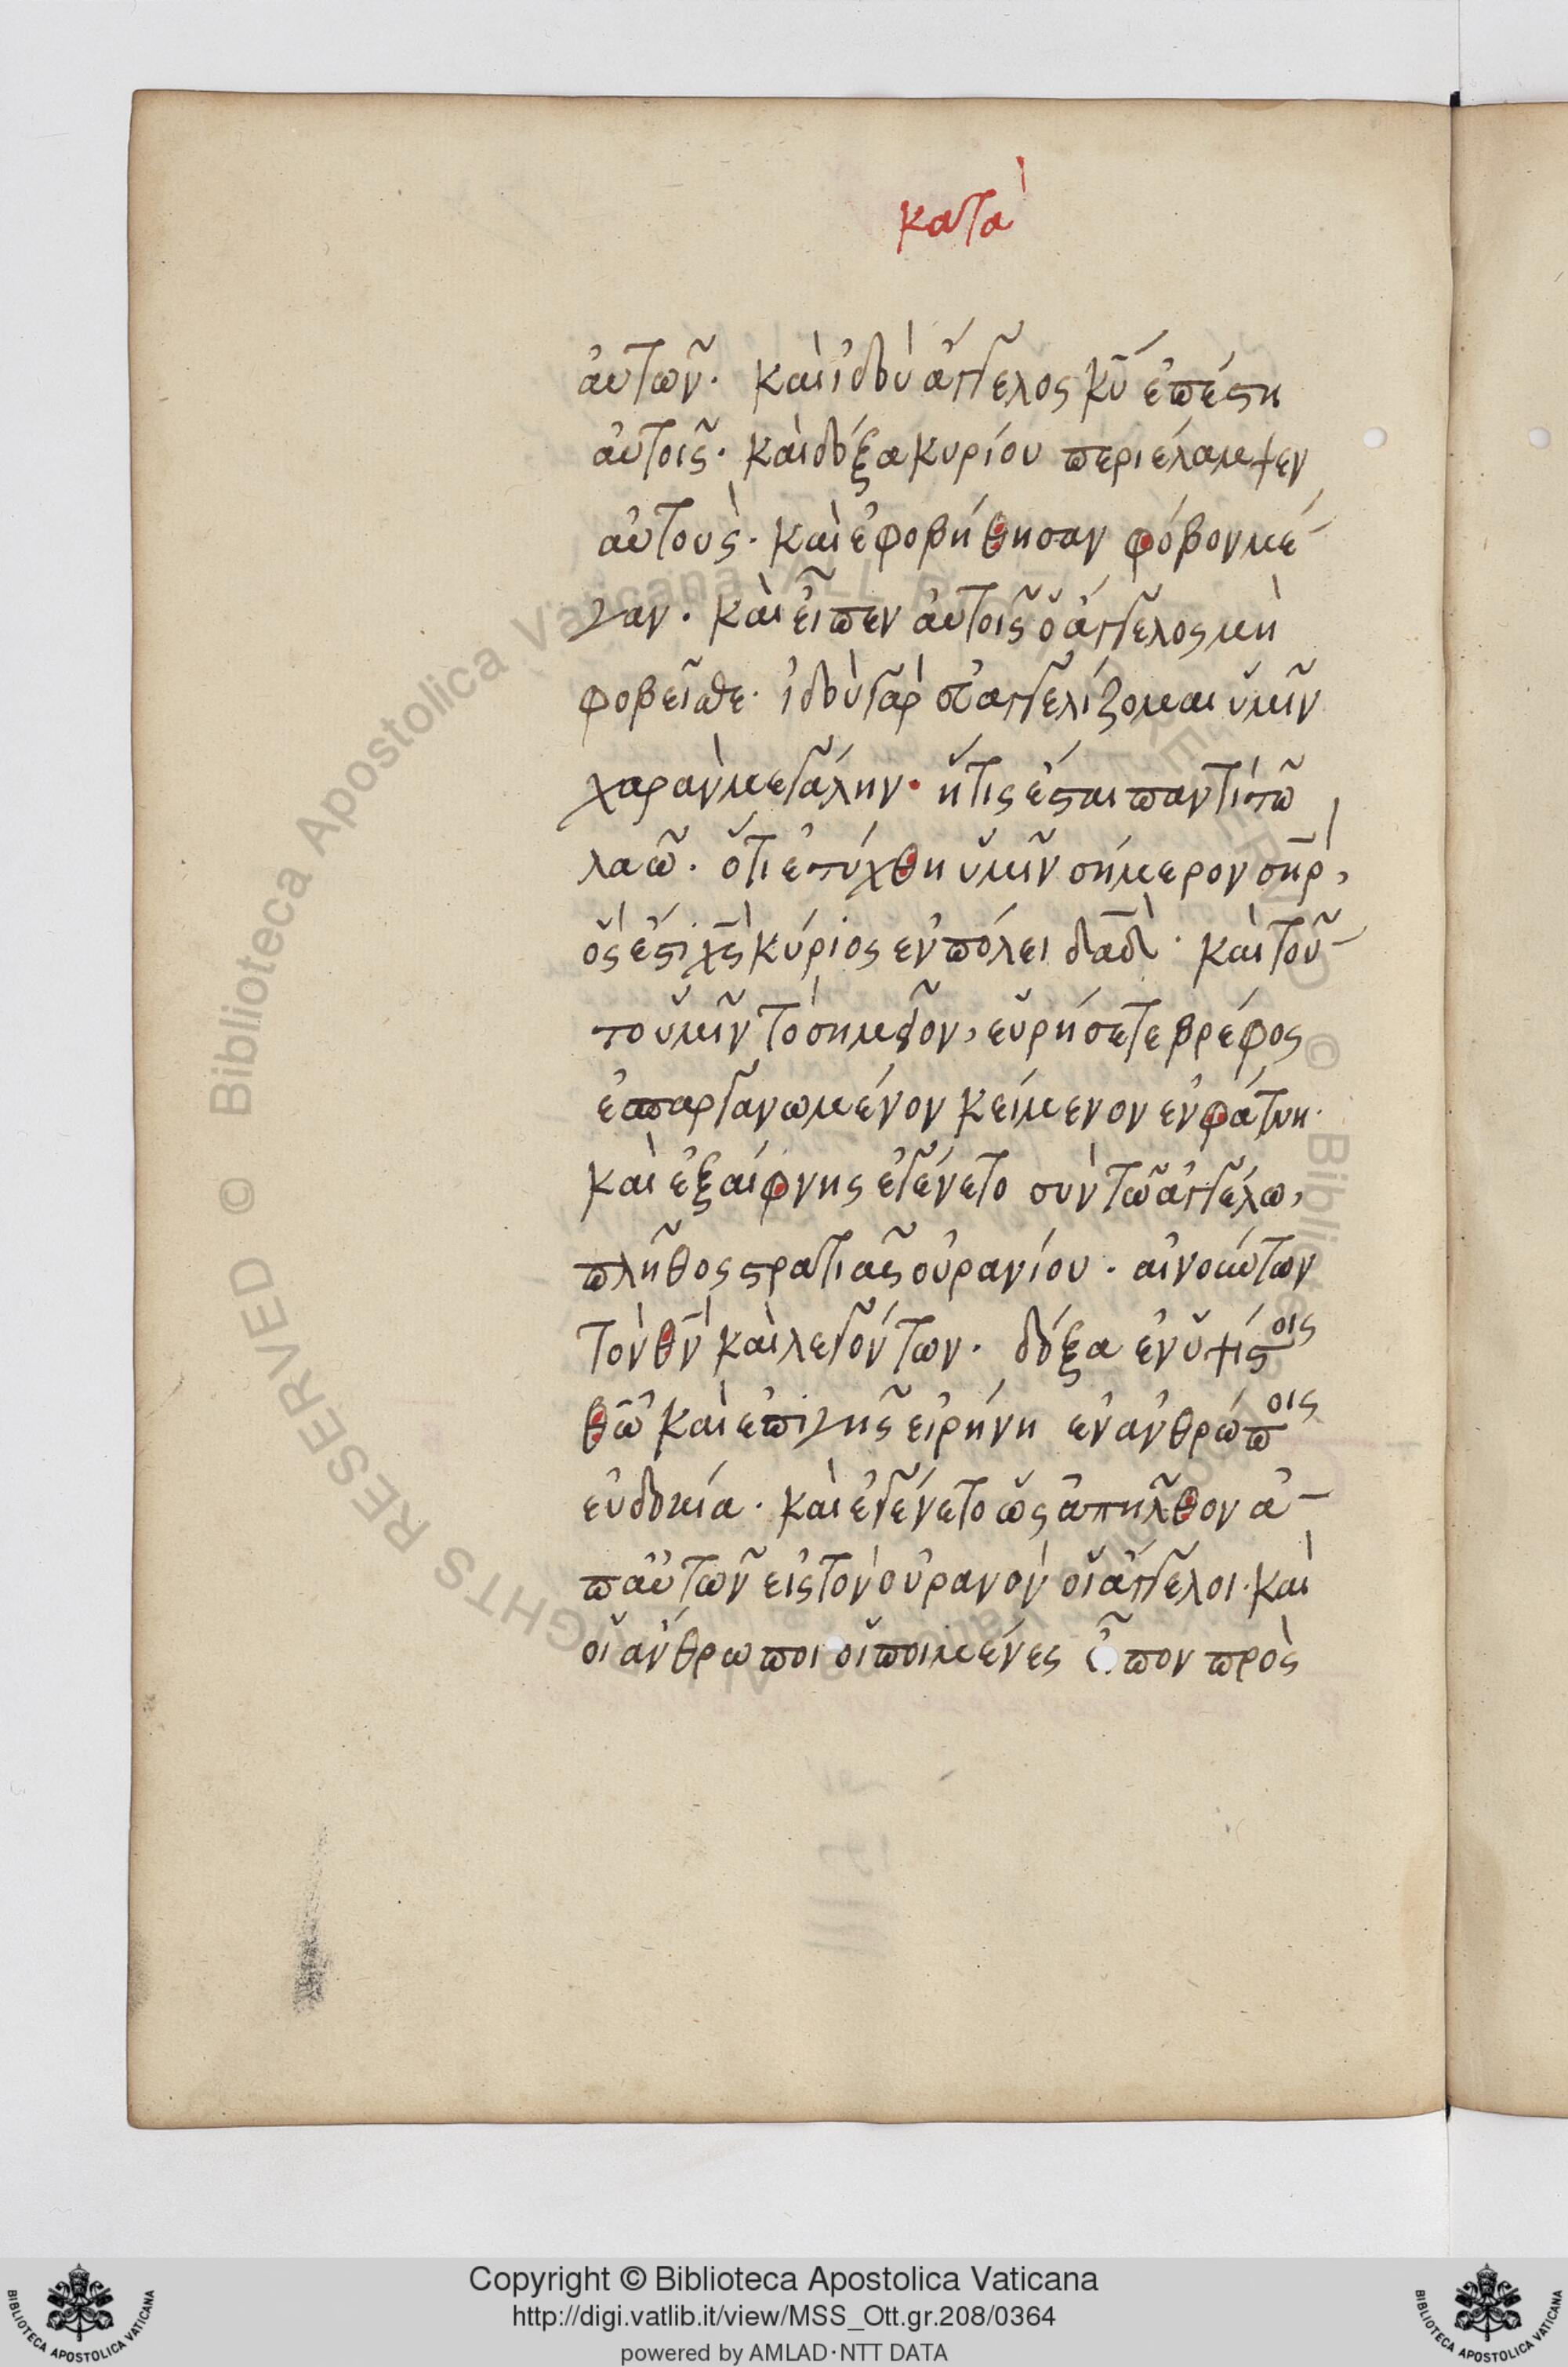 κατὰ
αὐτῶν. καὶ ἰδοὺ ἄγγελος κ̅υ̅ ἐπέστη
αὐτοῖς. καὶ δόξα κυρίου περιέλαμψεν
αὐτοὺς. καὶ ἐφοβήθησαν φόβον μέ-
γαν. καὶ εἶπεν αὐτοῖς ὁ ἄγγελος μὴ
φοβεῖσθε. ἰδοὺ γὰρ εὐαγγελίζομαι ὑμῖν
χαρὰν μεγάλην. ἥτις ἔσται παντὶ τῶ
λαῶ. ὅτι ἐτέχθη ὑμῖν σήμερον σ̅η̅ρ̅,
ὅς ἐστι χ̅ς̅ κύριος ἐν πόλει δ̅α̅δ̅. καὶ τοῦ-
το ὑμῖν τὸ σημεῖον, εὑρήσετε βρέφος
ἐσπαργανωμένον κείμενον ἐν φάτνη.
καὶ ἐξαίφνης ἐγένετο σὺν τῶ ἀγγέλω,
πλῆθος στρατιᾶς οὐρανίου. αἰνούντων
τὸν θ̅ν̅ καὶ λεγόντων. δόξα ἐν ὑψίστοις
θ̅ω̅ καὶ ἐπὶ γῆς εἰρήνη ἐν ἀνθρώποις
εὐδοκία. καὶ ἐγένετο ὡς ἀπῆλθον ἀ-
π αὐτῶν εἰς τὸν οὐρανὸν οἱ ἄγγελοι. καὶ
οἱ ἄνθρωποι οἱ ποιμένες εἶπον πρὸς
Copyright © Biblioteca Apostolica Vaticana
http://digi.vatlib.it/view/MSS_Ott.gr.208/0364
powered by AMLAD·NTT DATA
BIBLIOTECA APOSTOLICA VATICANA
BIBLIOTECA APOSTOLICA VATICANA
© Biblioteca Apostolica Vaticana ALL RIGHTS RESERVED